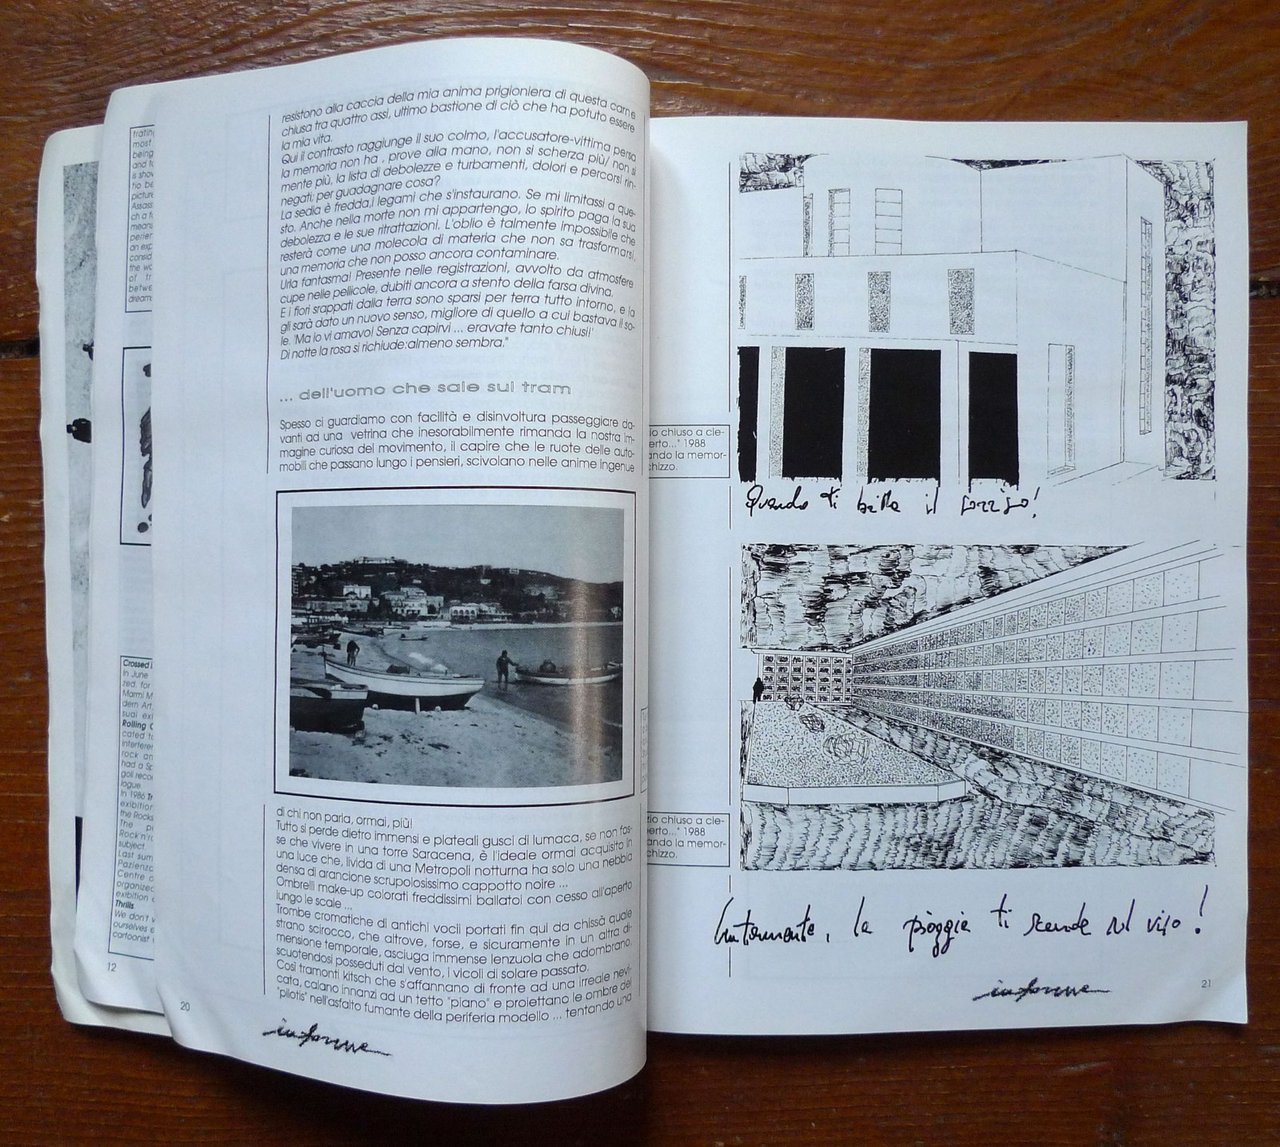 resistono alla caccia della mia anima prigioniera di questa carne
chiusa tra quattro assi, ultimo bastione di ciò che ha potuto essere
la mia vita.
Qui il contrasto raggunge il suo colmo, l'accusatore-vittima perso
la memoria non ha , prove alla mano, non si scherza più/ non si
mente più, la lista di debolezze e turbamenti, dolori e percorsi rin-
negati: per guadagnare cosa?
La sedia è fredda,i legami che s'instaurano. Se mi limitassi a que-
sto. Anche nella morte non mi appartengo, lo spirito paga la sua
debolezza e le sue ritrattazioni. L'oblio è talmente impossibile che
resterà come una molecola di materia che non sa trasformarsi,
una memoria che non posso ancora contaminare.
Urla fantasma! Presente nelle registrazioni, avvolto da atmosfere
cupe nelle pellicole, dubiti ancora a stento della farsa divina.
E i fiori srappati dalla terra sono sparsi per terra tutto intorno, e la
gli sarà dato un nuovo senso, migliore di quello a cui bastava il so-
le. 'Ma io vi amavo! Senza capirvi ... eravate tanto chiusi!'
Di notte la rosa si richiude:almeno sembra."
... dell'uomo che sale sul tram
Spesso ci guardiamo con facilità e disinvoltura passeggiare da-
vanti ad una vetrina che inesorabilmente rimanda la nostra im-
magine curiosa del movimento, il capire che le ruote delle auto-
mobili che passano lungo i pensieri, scivolano nelle anime ingenue
di chi non parla, ormai, più!
Tutto si perde dietro immensi e plateali gusci di lumaca, se non fos-
se che vivere in una torre Saracena, è l'ideale ormai acquisito in
una luce che, livida di una Metropoli notturna ha solo una nebbia
densa di arancione scrupolosissimo cappotto noire ...
Ombrelli make-up colorati freddissimi ballatoi con cesso all'aperto
lungo le scale ...
Trombe cromatiche di antichi vocii portati fin qui da chissà quale
strano scirocco, che altrove, forse, e sicuramente in un altra di-
mensione temporale, asciuga immense lenzuola che adombrano,
scuotendosi posseduti dal vento, i vicoli di solare passato.
Così tramonti kitsch che s'affannano di fronte ad una irreale nevi-
cata, calano innanzi ad un tetto "piano" e proiettano le ombre dei
"pilotis" nell'asfalto fumante della periferia modello ... tentando una
20
informe
12
Crossed
In June
zed, for
Marmi M
dern Art,
sual exi
Rolling
cated
interfere
rock an
had a Sp
goli reco
logue.
In 1986
exibition
the Rocks
The
Rock'n'ro
subject.
Last sum
Pazienza
Centre
organized
exibition
Thrills
We don't
ourselves
cartoonist
most
being
and
is show
tio be
picture
Assas
ch a
means
perien
an exp
consid
the wo
of
betwe
dreams
zio chiuso a cie-
erto..." 1988
ando la memor-
chizzo.
Quando ti balla il sorriso!
zio chiuso a cie-
erto..." 1988
ando la memor-
chizzo.
la pioggia ti scende sul viso!
informe
21